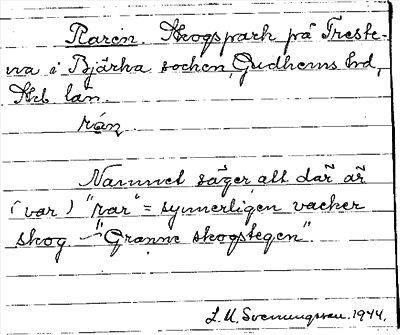 Raren. Skogspark på Treste-
na i Bjärka socken, Gudhems hd,
Skb län.
rán
Namnet säger att där är
(var) "rar" = synnerligen vacker
skog - "Granne skogstegen".
L. M. Svenungsson. 1944.